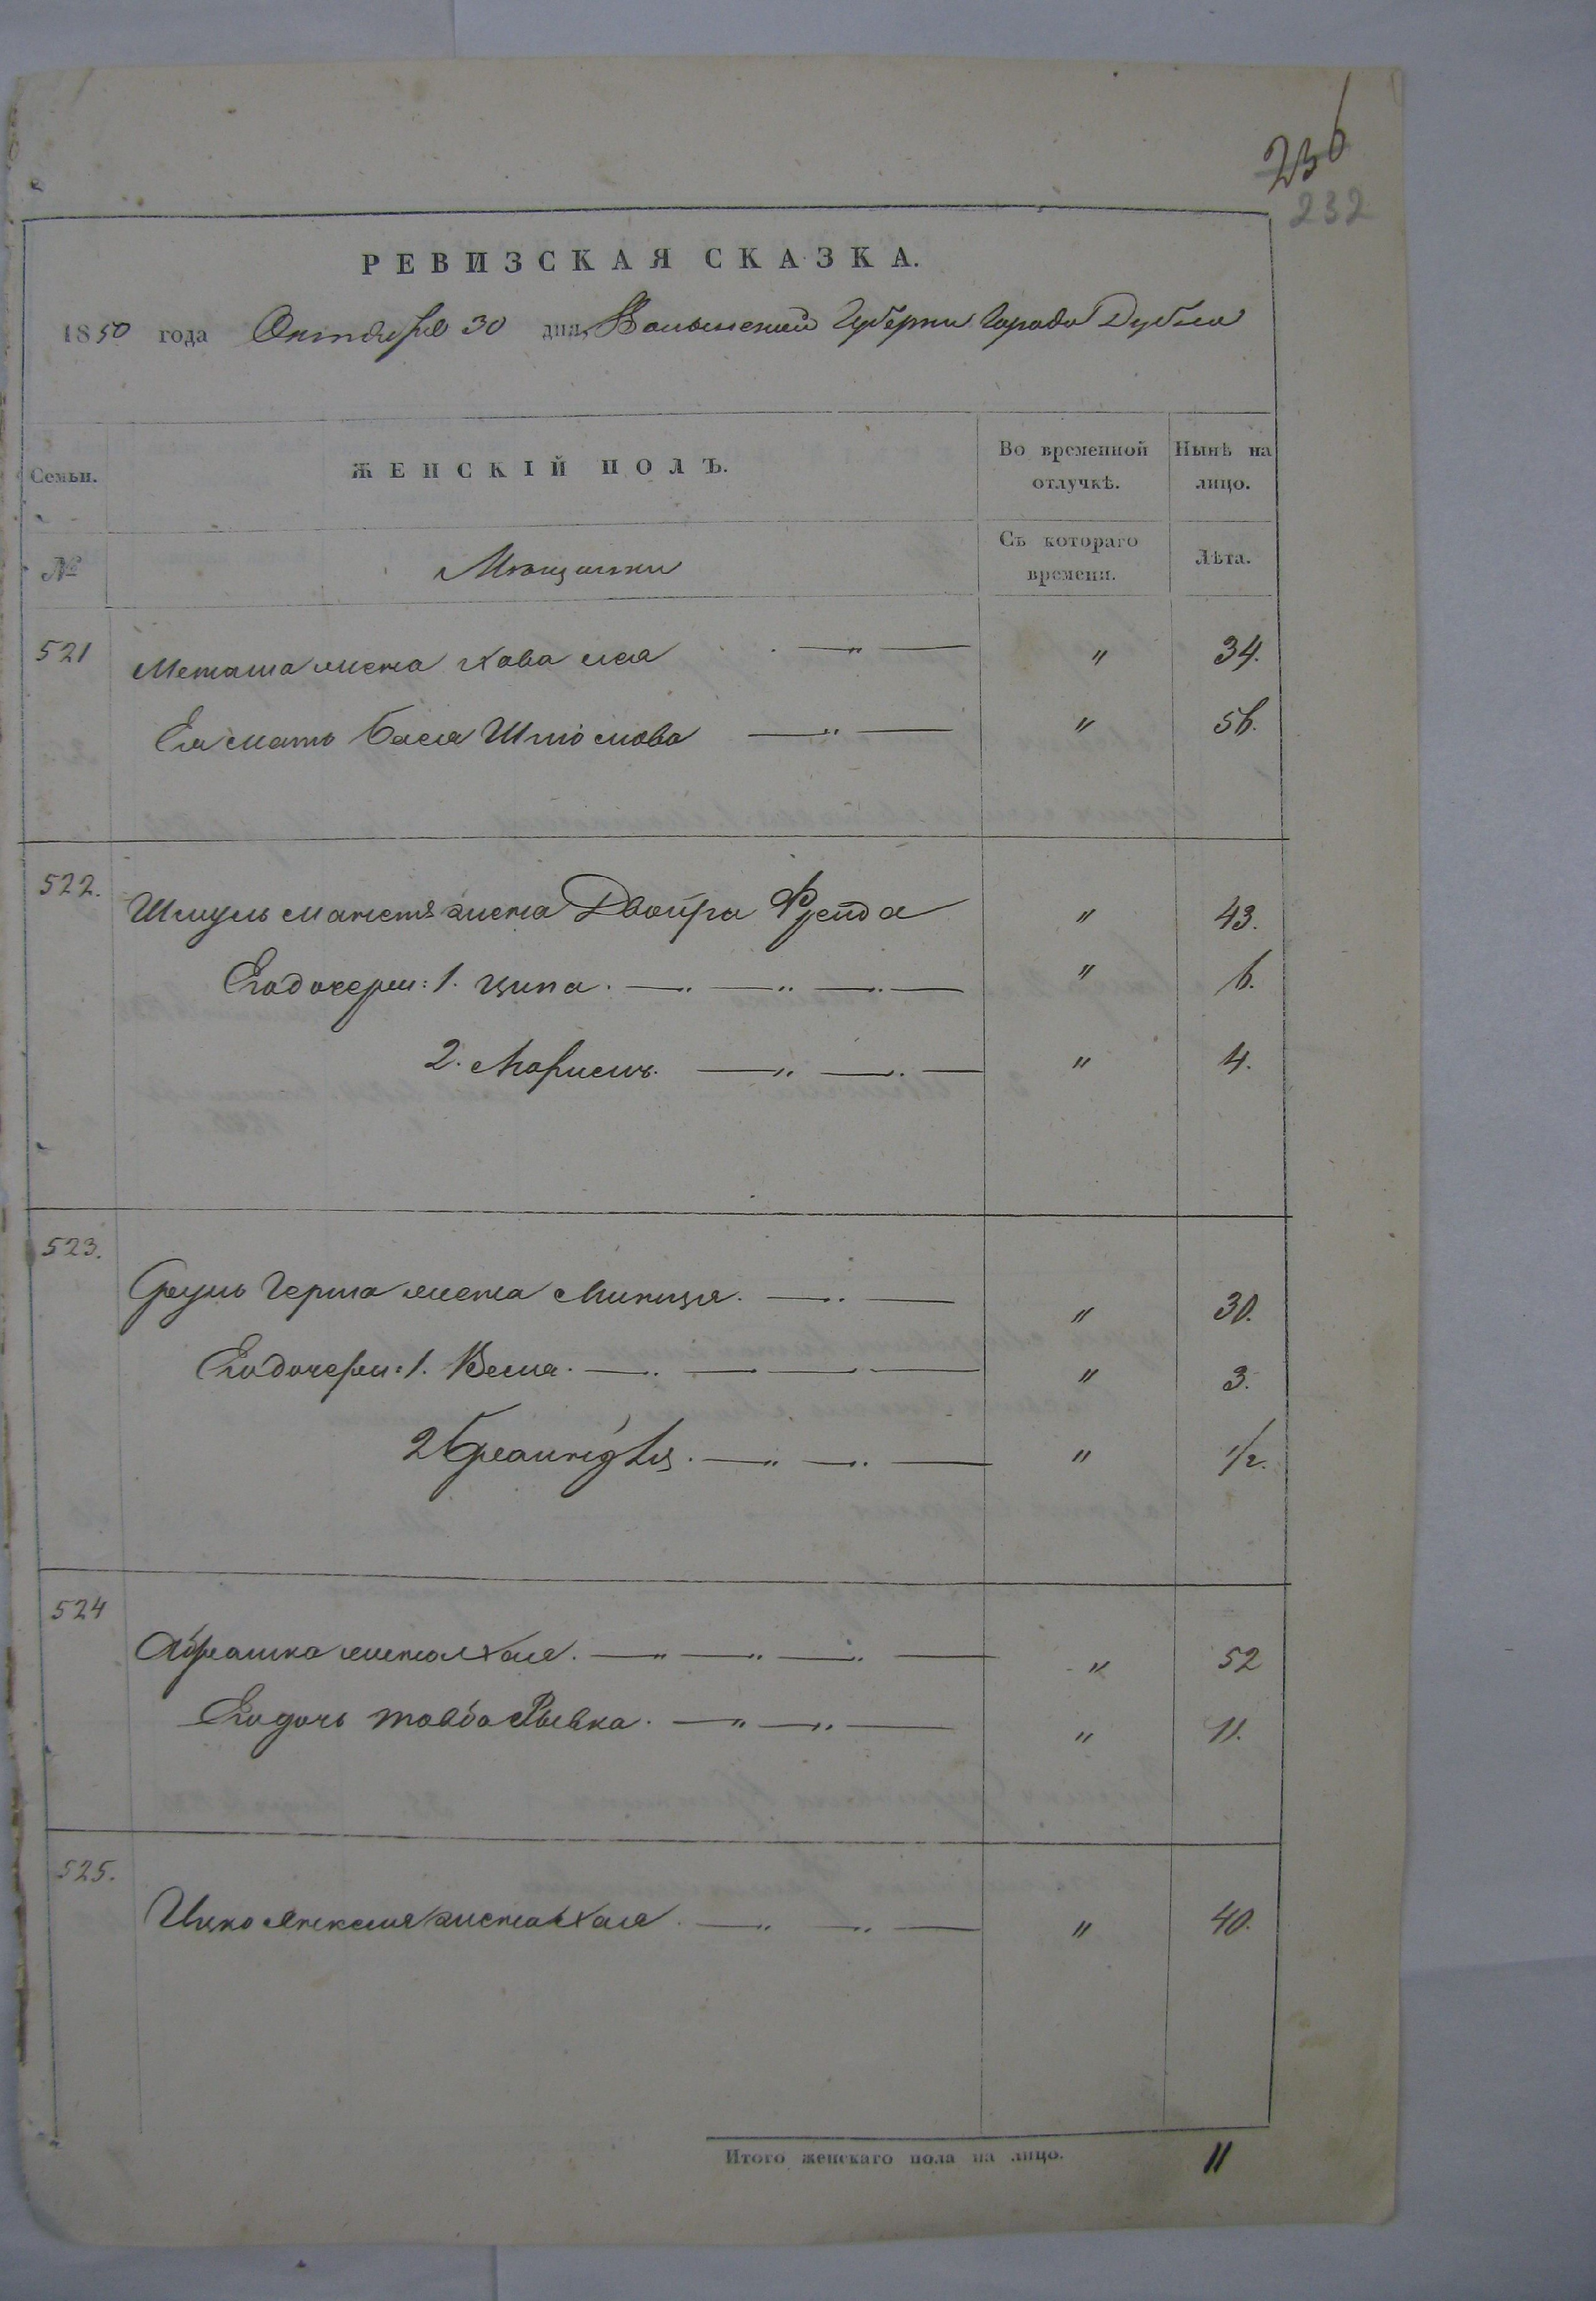 236
232
РЕВИЗСКАЯ СКАЗКА.
1850 года Октября 30 дня, Волынской Губернии Города Дубна
Семьи. ЖЕНСКІЙ ПОЛЪ. Во временной отлучкѣ. Нынѣ на лицо.
№ Мѣщанки Съ котораго времени. Лѣта.
521 жена Хава Лея " 34.
Ея мать Бася Шліомова " 56.
522. Шмуль жена Двойра Фрейда " 43.
Его дочери: 1. Ципа. " 6.
2. Маріемъ. " 4.
523. Сруль Герша жена " 30.
Его дочери: 1. " 3.
2 " 1/2.
524 Абрашка жена Хая. " 52
Его дочь Товба Рывка. " 11.
525. Ицко жена Хая. " 40.
Итого женскаго пола на лицо. 11